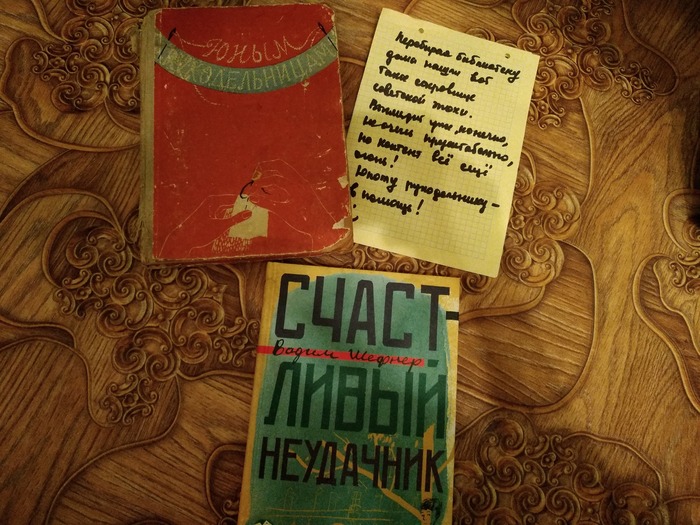 Юным
рукодельницам
Перебирая библиотеку
дома нашли вот
такое сокровище
советской эпохи.
Выглядит уже, конечно,
не очень презентабельно,
но контент всё ещё
огонь!
Юному рукодельнику -
в помощь!
СЧАСТ-
Вадим Шефнер
ЛИВЫЙ
НЕУДАЧНИК